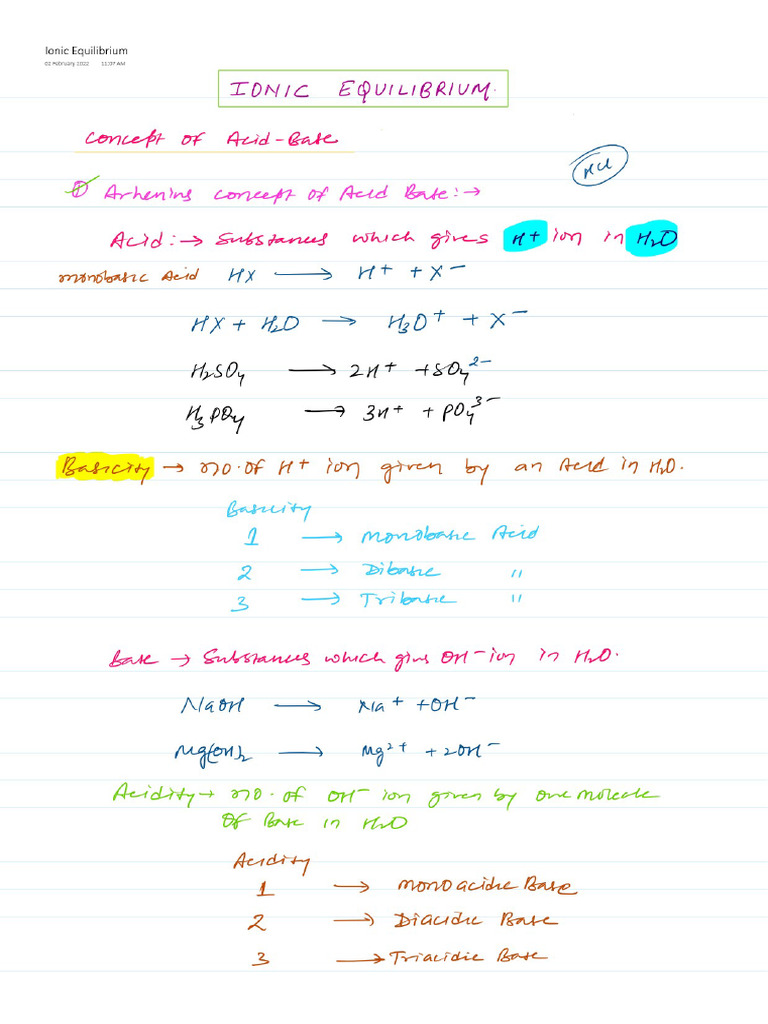 Ionic Equilibrium
02 February 2022 11:07 AM
IONIC EQUILIBRIUM.
Concept of Acid-Base
HCl
① Arhenius concept of Acid Base:→
Acid:→ Substances which gives H+ ion in H2O
monobasic Acid HX ⟶ H+ + X−
HX + H2O ⟶ H3O+ + X−
H2SO4 ⟶ 2H+ + SO4 2−
H3PO4 ⟶ 3H+ + PO4 3−
Basicity → no. of H+ ion given by an Acid in H2O.
Basicity
1 ⟶ monobasic Acid
2 ⟶ Dibasic "
3 ⟶ Tribasic "
Base → Substances which gives OH− ion in H2O.
NaOH ⟶ Na+ + OH−
Mg(OH)2 ⟶ Mg2+ + 2OH−
Acidity → no. of OH− ion given by one molecule
Of Base in H2O
Acidity
1 ⟶ monoacidic Base
2 ⟶ Diacidic Base
3 ⟶ Triacidic Base